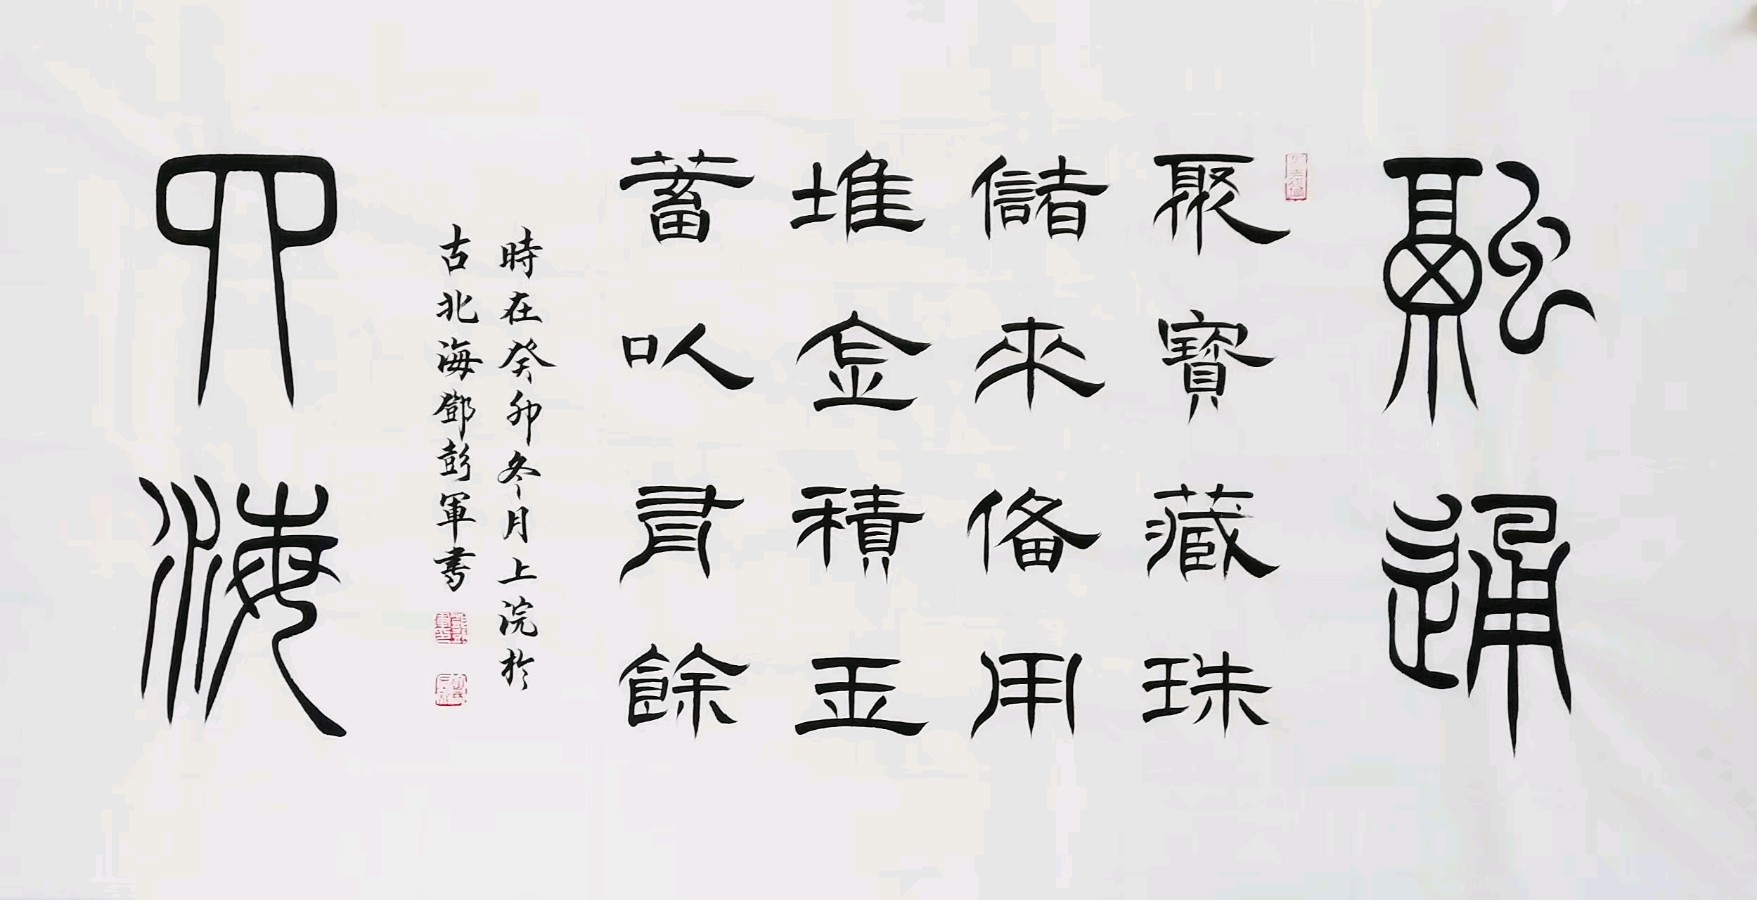 融通
聚寶藏珠
儲來俻用
堆金積玉
蓄以有餘
時在癸卯冬月上浣於
古北海鄧彭軍书
四海